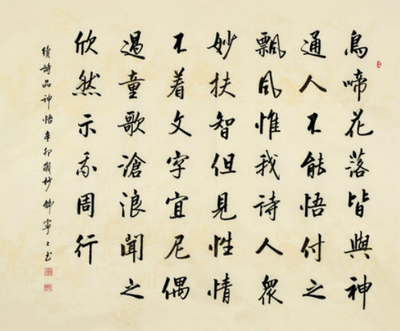 鳥啼花落皆與神
通人不能悟付之
飄風惟我詩人眾
妙扶智但見性情
不着文字宣尼偶
過童歌滄浪聞之
欣然示我周行
續詩品神悟辛卯歲杪